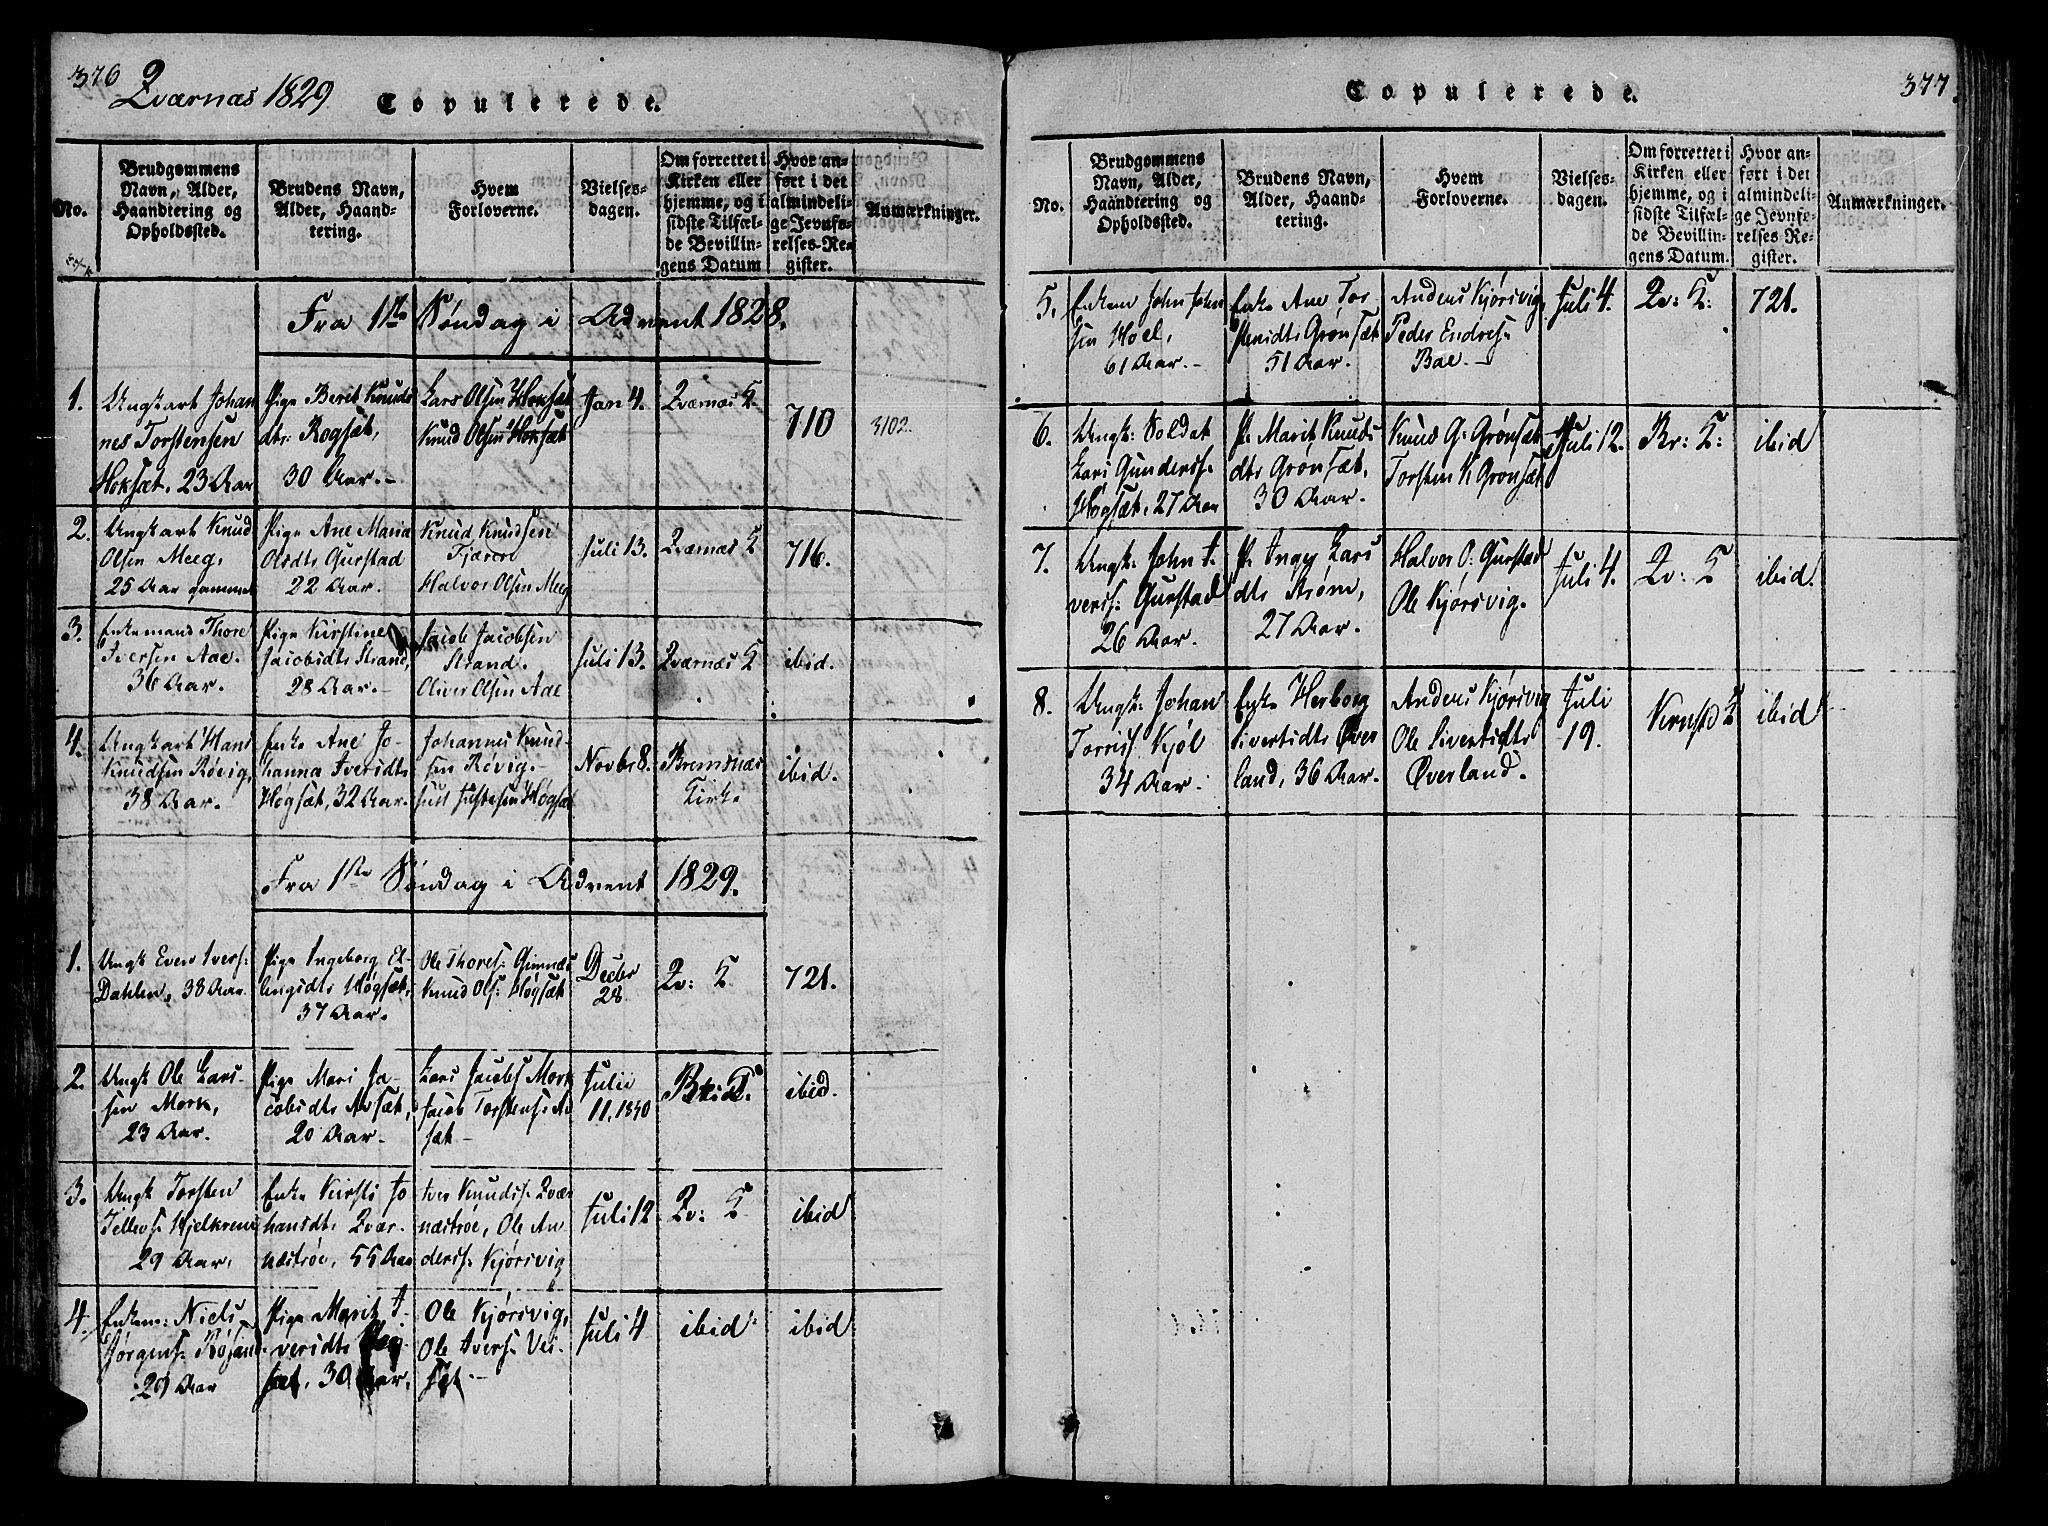 376
Qværnæs 1829
Copulerede.
No.
Brudgommens Navn, Alder, Haandtering og Opholdssted.
Brudens Navn, Alder, Haandtering.
Hvem Forloverne.
Vielses-dagen.
Om forrettet i Kirken eller hjemme, og i sidste Tilfælde Bevillingens Datum
Hvor anført i det almindelige Jevnførelses-Register.
Anmærkninger.
Fra 1ste Søndag i Advent 1828.
1.
Ungkarl Johan
nes Torstensen
Hoksæt, 23 Aar
Pige Berit Knuds
dtr: Rogsæt,
30 Aar.-
Lars Olsen Hoksæt
Knud Olsen Hoksæt
Jan 4.
Qværnæs K
710
3102.
2.
Ungkarl Knud
Olsen Meeg,
25 Aar gammel
Pige Ane Maria
Olsdtr Gurstad
22 Aar.
Knud Knudsen
Tjæren
Halvor Olsen Meeg
Juli 13.
Qværnæs K
716.
3.
Enkemand Thore
Iversen Aae.
36 Aar.
Pige Kirstine
Jacobsdtr Strand,
28 Aar.-
Jacob Jacobsen
Strand.
Oliver Olsen Aae
Juli 13.
Qværnæs K
ibid.
4.
Ungkarl Hans
Knudsen Røvig,
38 Aar.
Enke Ane Jo-
hanna Iversdtr
Høgsæt, 32 Aar.
Johannes Knud-
sen Røvig.-
Just Justesen Høgsæt
Novbr 8.
Bremsnæs
Kirke
ibid.
Fra 1ste Søndag i Advent 1829.
1.
Ungk Even Ivers:
Dahlen, 38 Aar
Pige Ingeborg El-
lingsdtr Høgsæt,
37 Aar.
Ole Thores: Gimnæs
Knud Ols: Høgsæt
Decbr
28
Qv: K
721.
2.
Ungk Ole Lars-
sen Mork,
23 Aar.
Pige Mari Ja-
cobsdtr Avsæt,
20 Aar-
Lars Jacobs Mork
Jacob Torstens: Av
sæt-
Julii
11. 1830
ibid.
3.
Ungk Torsten
Tellevs: Hjelkrem
29 Aar,
Enke Kirsti Jo
hansdtr Qvær-
næstrøe, 55 Aar
Iver Knuds: Qvær
næstrøe, Ole An
ders: Kjørsvig
Juli 12
Qv: K
ibid
4.
Enkem: Niels
Jørgens: Røsand
29 Aar
Pige Marit I-
versdtr
sæt, 30 Aar,
Ole Kjørsvig,
Ole Ivers: Vei-
sæt.-
Juli 4
ibid
ibid
Copulerede.
377.
No.
Brudgommens Navn, Alder, Haandtering og Opholdssted.
Brudens Navn, Alder, Haandtering.
Hvem Forloverne.
Vielses-dagen.
Om forrettet i Kirken eller hjemme, og i sidste Tilfælde Bevillingens Datum.
Hvor anført i det almindelige Jevnførelses Register.
Anmærkninger.
5.
Enkem John John
sen Hoel,
61 Aar.-
Enke Ane Tor-
stensdtr Grønsæt
51 Aar.
Anders Kjørsvig,
Peder Endres:
Bae.-
Juli 4.
Qv: K:
721.
6.
Ungk: Soldat
Lars Gunders:
Høgsæt, 27 Aar
P. Marit Knuds
dtr Grønsæt,
30 Aar.
Knud G. Grønsæt
Torsten K Grønsæt
Juli 12.
Br: K:
ibid
7.
Ungk: John I-
vers: Gurstad
26 Aar.
P. Ingeborg Lars
dtr Strøm,
27 Aar.
Halvor O: Gurstad
Ole Kjørsvig.
Juli 4.
Qv: K
ibid.
8.
Ungk: Johan
Torris: Kjøl
34 Aar.
Enke Herborg
Sivertsdtr Øver
land, 36 Aar.
Anders Kjørsvig
Ole Sivertsdtr
Øverland.
Juli
19.
Kornstd K
ibid